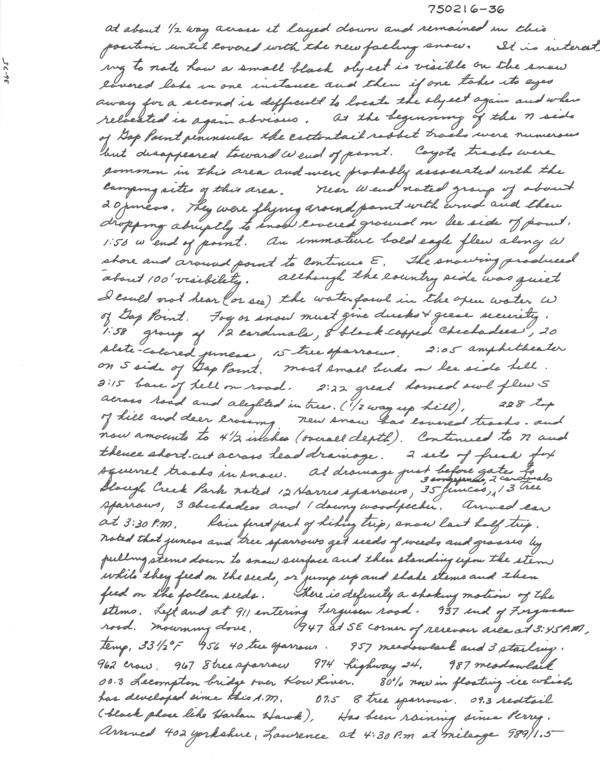 750216-36
36-75
at about 1/2 way across it layed down and remained in this
position until covered with the new falling snow. It is interest
ing to note how a small black object is visible on the snow
covered lake in one instance and then if one takes its eyes
away for a second is difficult to locate the object again and when
relocated is again obvious. At the beginning of the N side
of Gap Point peninsula the cottontail rabbit tracks were numerous
but disappeared toward W end of point. Coyote tracks were
common in this area and were probably associated with the
camping sites of this area. Near W end noted group of about
20 juncos. They were flying around point with wind and then
dropping abruptly to snow covered ground on lee side of point.
1:50 W end of point. An immature bald eagle flew along W
shore and around point to continue E. The snowing produced
about 100' visibility. Although the country side was quiet
I could not hear (or see) the waterfowl in the open water W
of Gap Point. Fog or snow must give ducks & geese security.
1:58 group of 12 cardinals, 8 black capped chickadees, 20
slate-colored juncos, 15 tree sparrows. 2:05 amphitheater
on S side of Gap Point. Most small birds on lee side hill.
2:15 base of hill on road. 2:22 great horned owl flew S
across road and alighted in tree. (1/2 way up hill), 228 top
of hill and deer crossing. New snow has covered tracks. and
now amounts to 4 1/2 inches (overall depth). Continued to N and
thence short-cut across head drainage. 2 sets of fresh fox
squirrel tracks in snow. At drainage just before gates to
3 2 cardinals
Slough Creek Park noted 12 Harris sparrows, 35 juncos, 13 tree
sparrows, 3 chickadees and 1 downy woodpecker. Arrived car
at 3:30 P.M. Rain first part of hiking trip, snow last half trip.
Noted that juncos and tree sparrows get seeds of weeds and grasses by
pulling stems down to snow surface and then standing upon the stem
while they feed on the seeds, or jump up and shake stems and then
feed on the fallen seeds. There is definitly a shaking motion of the
stems. Left and at 911 entering Ferguson road. 937 end of Ferguson
road. Mourning dove. 947 at SE corner of resevoir area at 3:45 P.M,
temp, 33 1/2°F 956 40 tree sparrows. 957 meadowlark and 3 starling.
962 crow. 967 8 tree sparrow 974 highway 24. 987 meadowlark
00.3 Lecompton bridge over Kaw River. 80% now in floating ice which
has developed since this A.M. 07.5 8 tree sparrows. 09.3 redtail
(black phase like Harlan Hawk). Has been raining since Perry.
Arrived 402 Yorkshire, Lawrence at 4:30 P.M at mileage 989/1.5